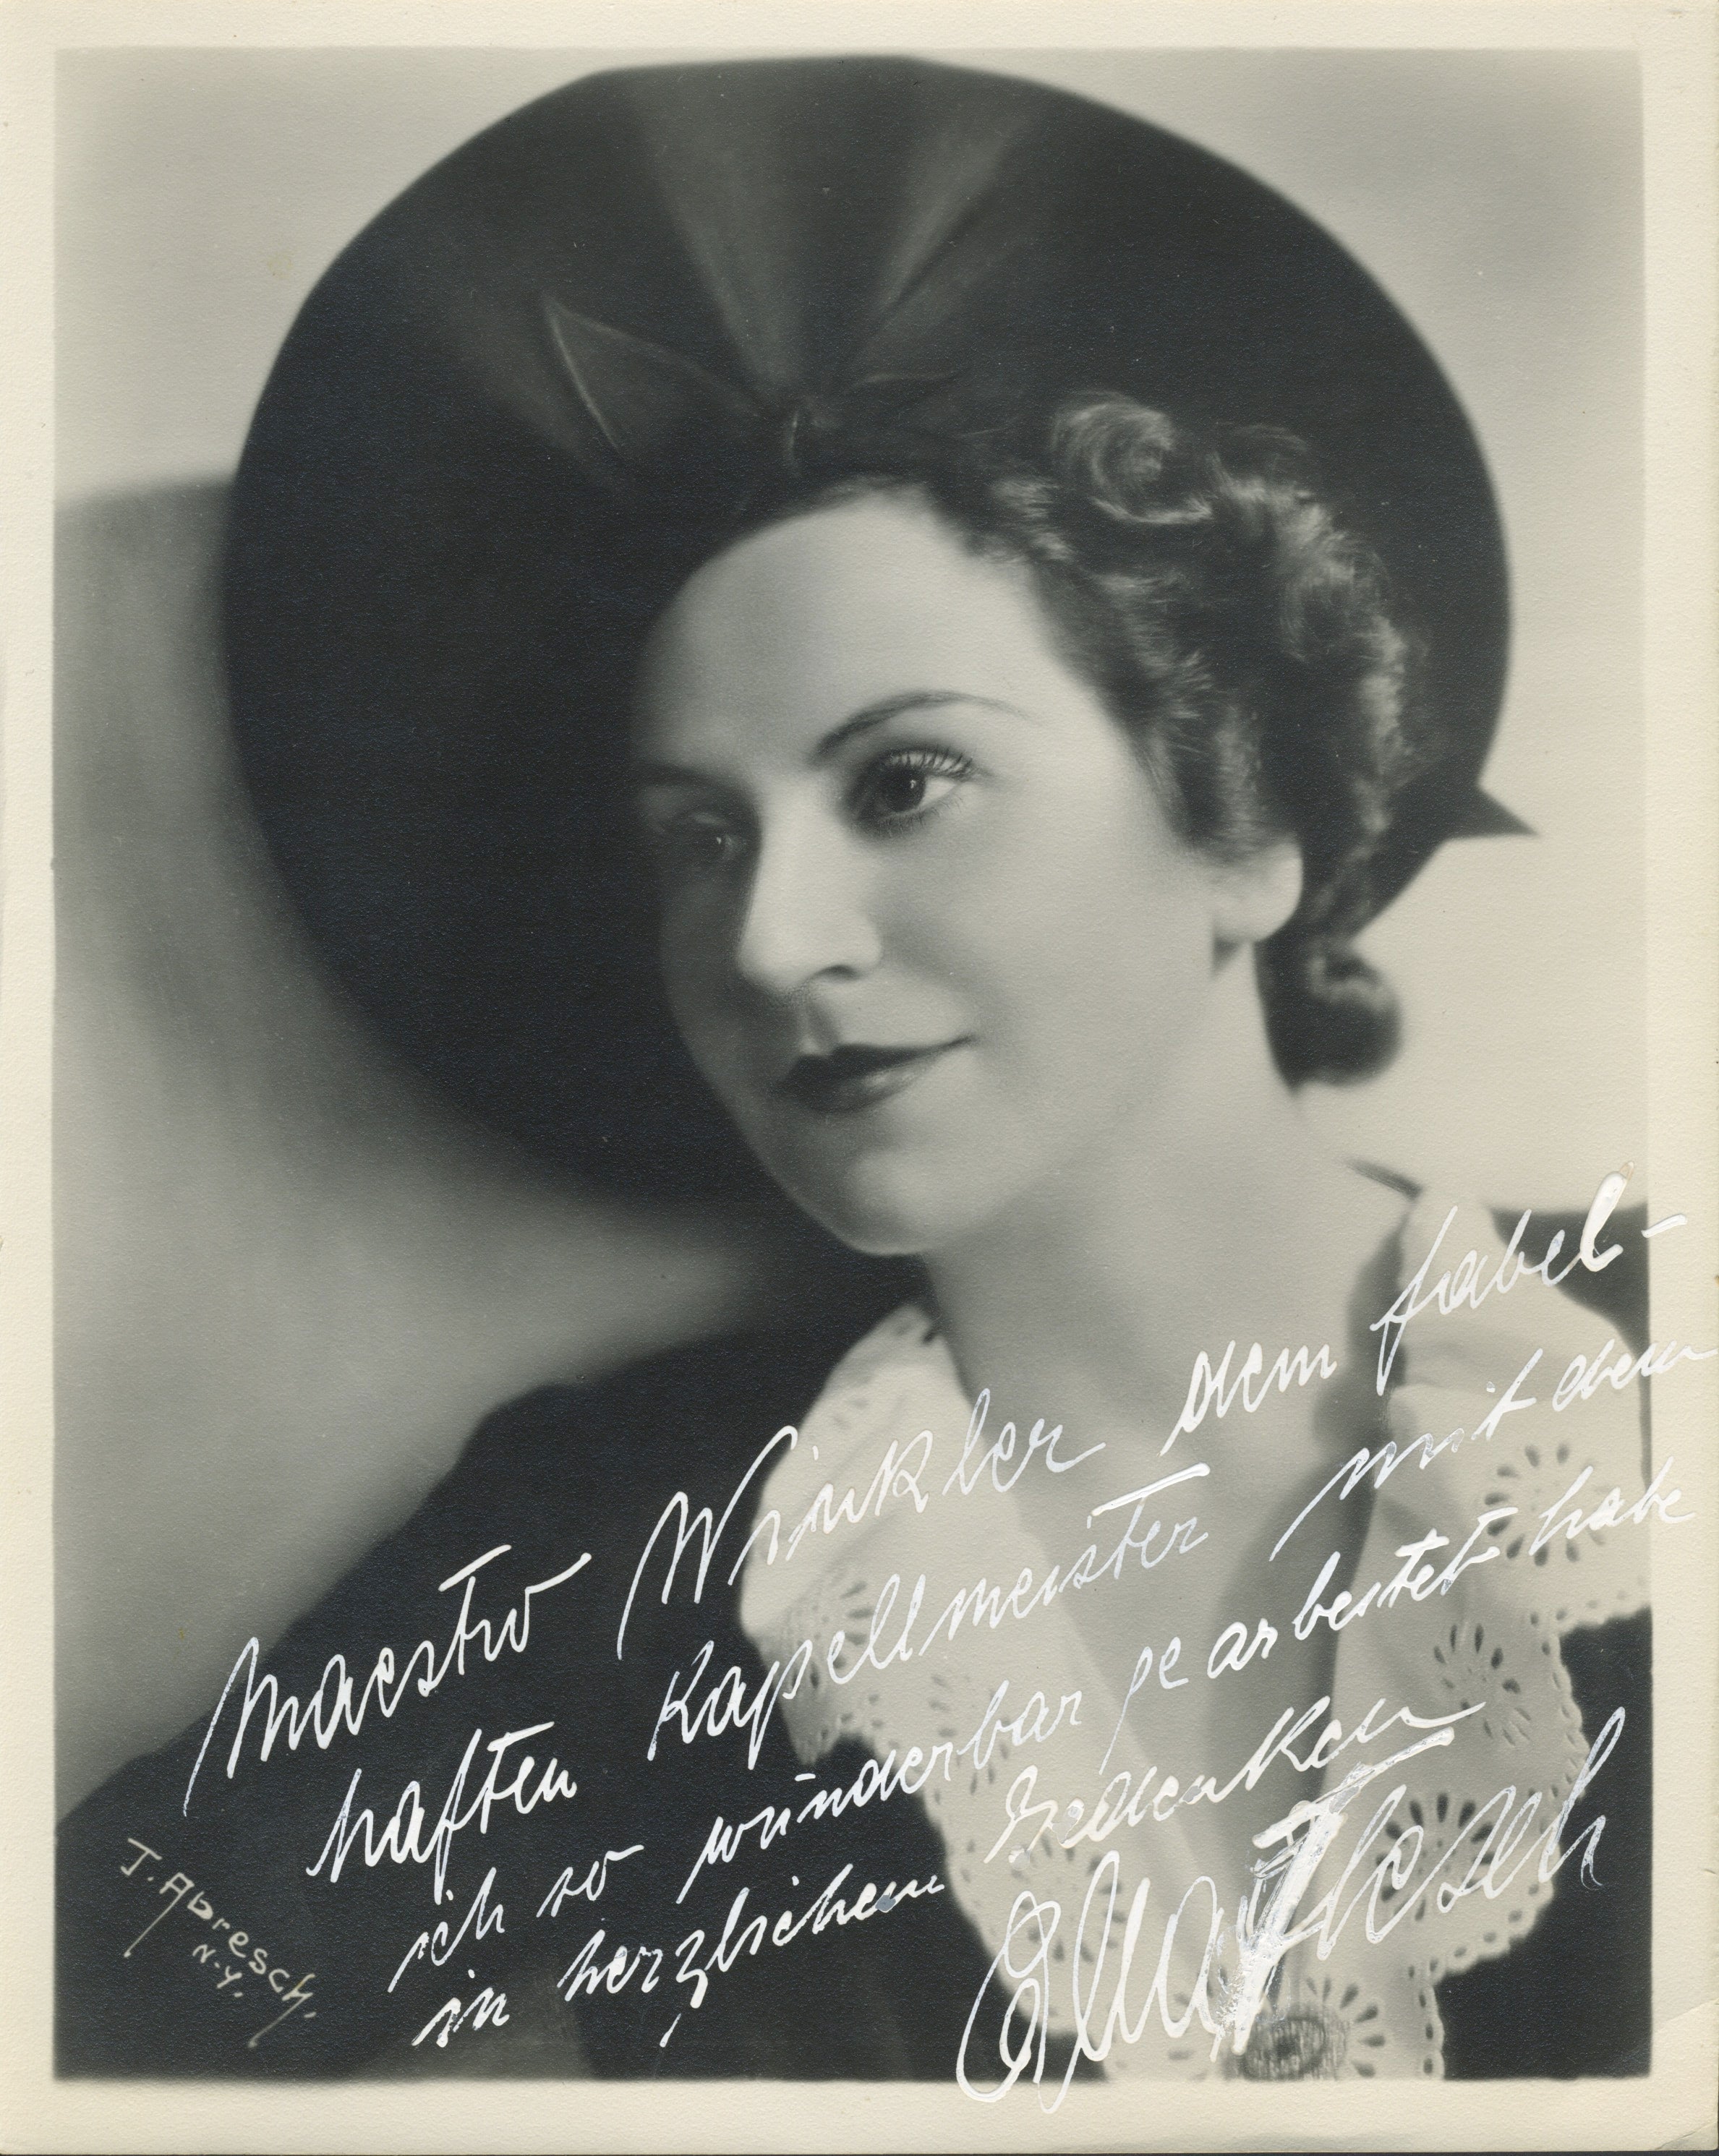 Maestro Winkler dem fabel-
haften Kapellmeister mit dem
ich so wunderbar gearbeitet habe
in herzlichem Gedenken
Ella Flesch
J. Abresch.
N.Y.